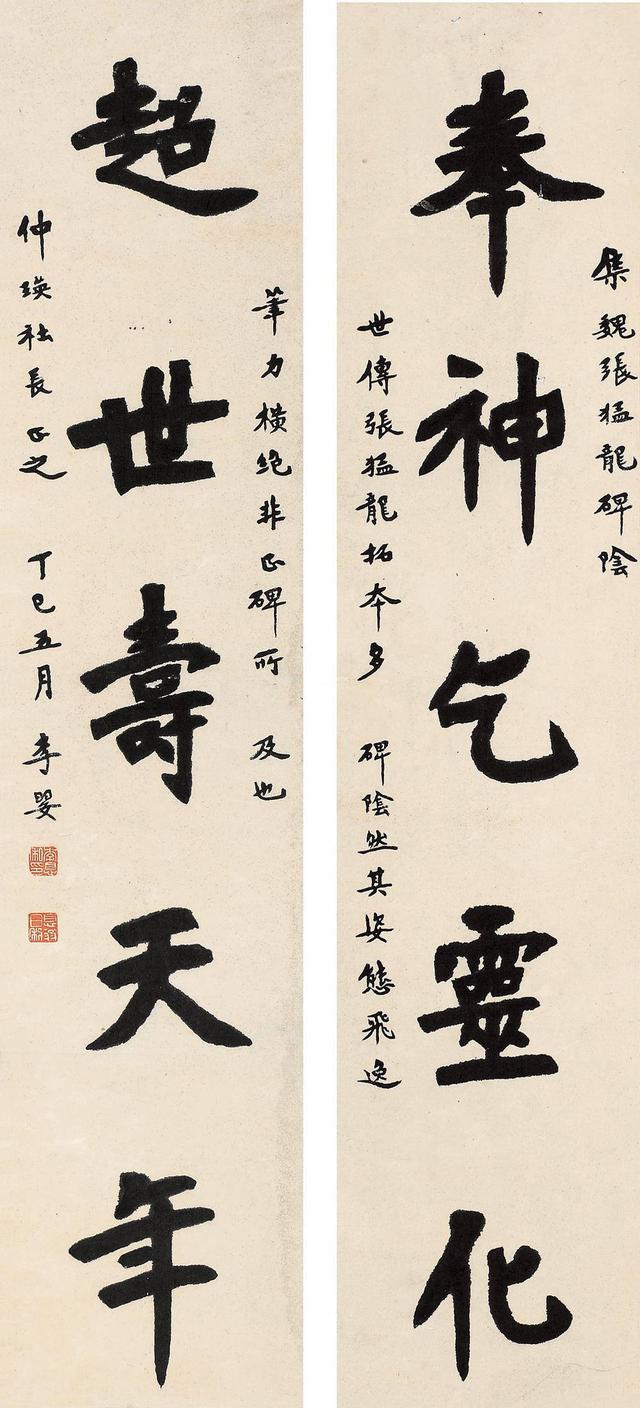 奉神乞靈化
集魏張猛龍碑陰
世傳張猛龍拓本多
碑陰然其姿態飛逸
超世壽天年
筆力橫絶非正碑所
及也
仲瑛社長正之
丁巳五月
李嬰